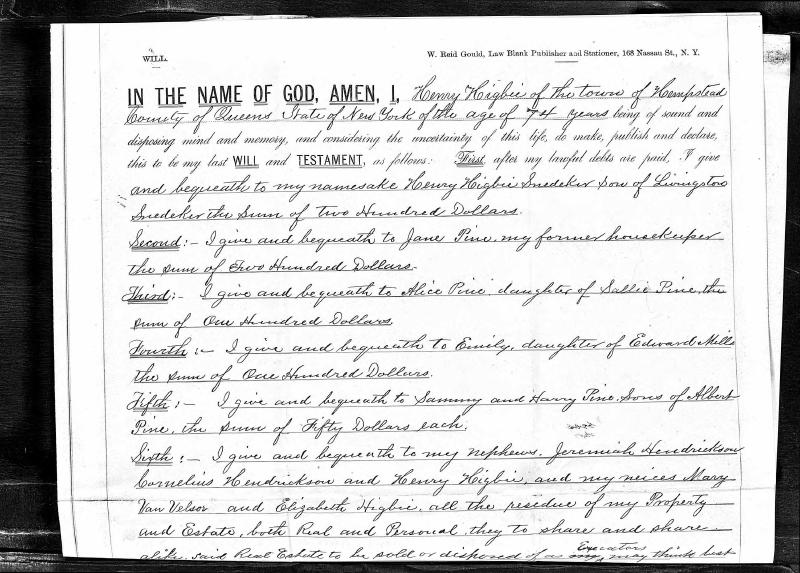 WILL.
W. Reid Gould, Law Blank Publisher and Stationer, 168 Nassau St., N. Y.
IN THE NAME OF GOD, AMEN, I, Henry Higbie of the town of Hempstead
County of Queens State of New York of the age of 74 years being of sound and
disposing mind and memory, and considering the uncertainty of this life, do make, publish and declare,
this to be my last WILL and TESTAMENT, as follows: First after my lawful debts are paid, I give
and bequeath to my namesake Henry Higbie Snedeker Son of Livingston
Snedeker the Sum of Two Hundred Dollars.
Second:- I give and bequeath to Jane Pine my former housekeeper
the sum of Two Hundred Dollars.
Third:- I give and bequeath to Alice Pine, daughter of Sallie Pine, the
sum of One Hundred Dollars.
Fourth:- I give and bequeath to Emily, daughter of Edward Mills
the sum of One Hundred Dollars.
Fifth:- I give and bequeath to Sammy and Harry Pine, Sons of Albert
Pine, the sum of Fifty Dollars each.
Sixth:- I give and bequeath to my nephews, Jeremiah Hendrickson
Cornelius Hendrickson and Henry Higbie, and my neices Mary
Van Velsor and Elizabeth Higbie, all the residue of my Property
and Estate, both Real and Personal, they to share and share
alike, said Real Estate to be sold or disposed of as my Executors may think best